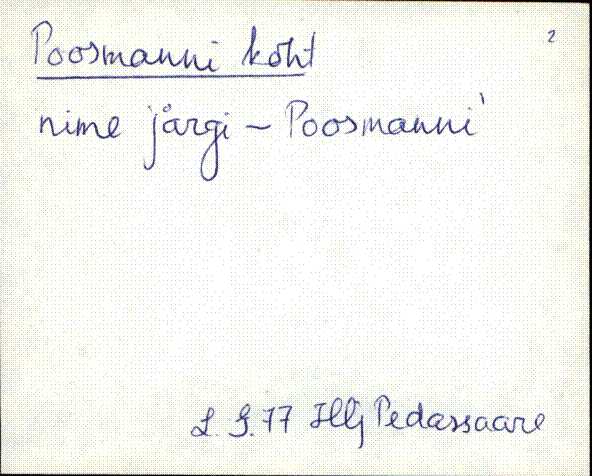 2
Poosmanni koht
nime järgi - Poosmanni'
L. G. 77 Hlj Pedassaare